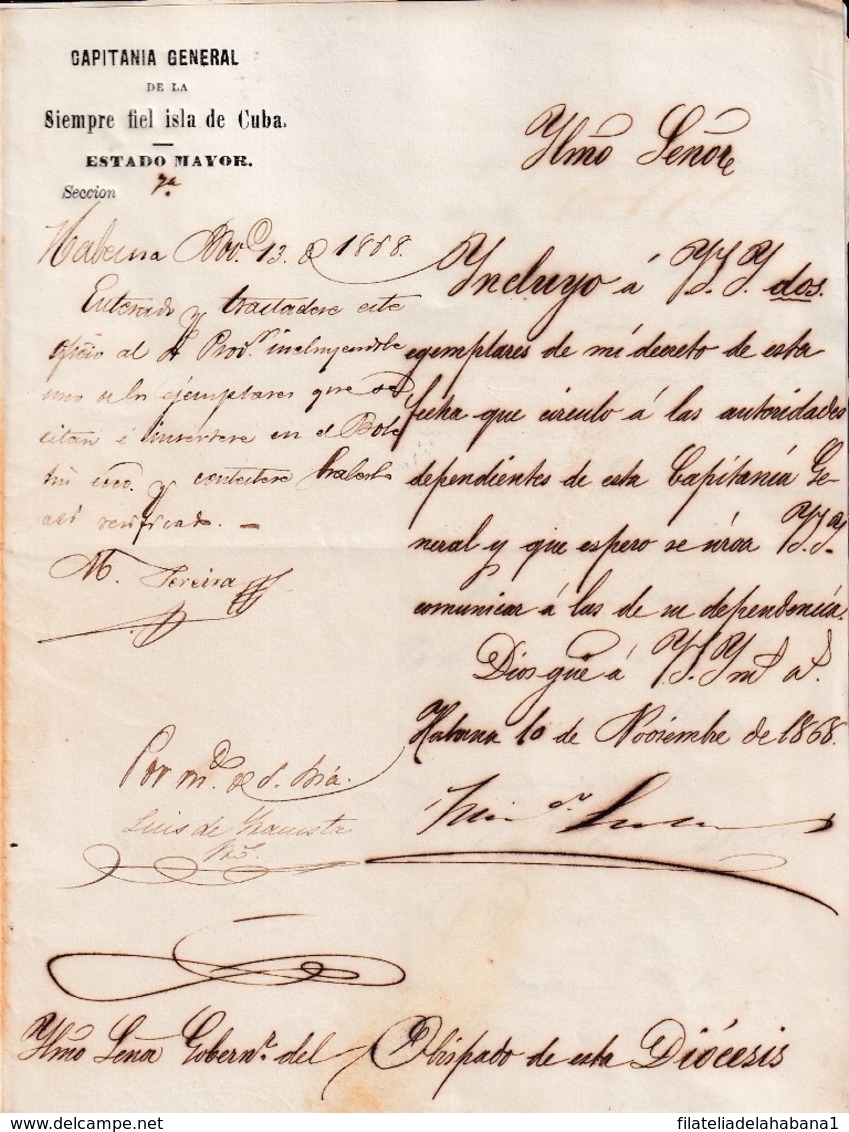 CAPITANIA GENERAL
DE LA
Siempre fiel isla de Cuba.
ESTADO MAYOR.
Seccion 7ª
Ylmõ Señor
Habana Nov.e 13. de 1868.
Enterado y trasladese este
oficio al Sr Prov.r incluyendole
uno de los ejemplares que se
citan é insertese en el Bole
tin ecco. y contestese haberlo
asi verificado. —
M. Pereira
Por m.do de S. Sria.
Luis de
Yncluyo á V.S.Y. dos
egemplares de mi decreto de esta
fecha que circulo á las autoridades
dependientes de esta Capitanía Ge-
neral y que espero se sirva V.S.Y.
comunicar á las de su dependencia.
Dios güe á V.S.Y. ms as.
Habana 10 de Noviembre de 1868.
Ylmõ Señor Gobernr. del Obispado de esta Diócesis
filateliadelahabana1
delcampe.net